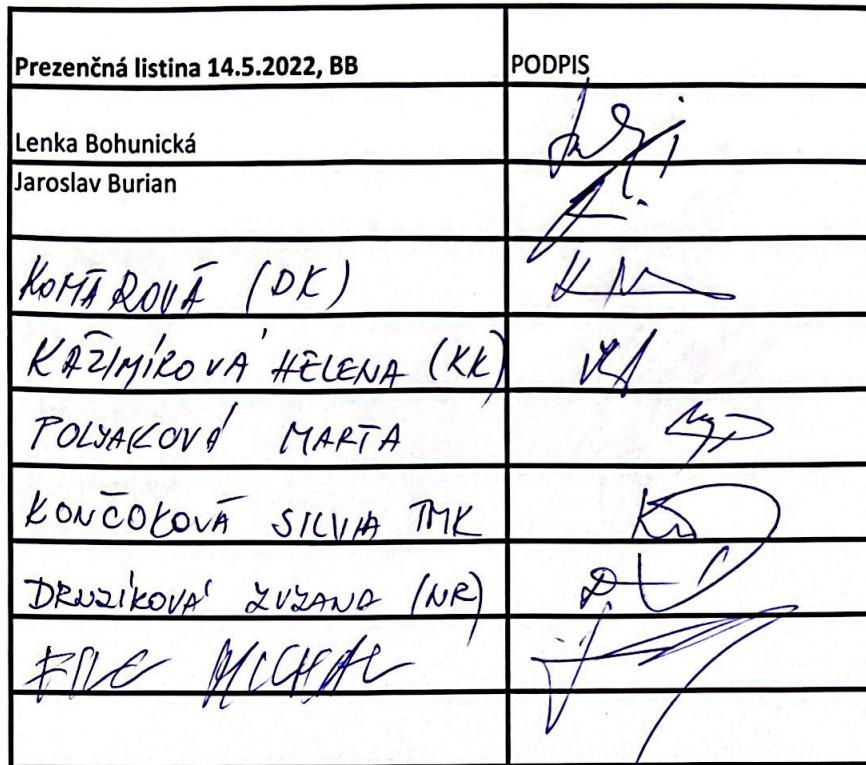 Prezenčná listina 14.5.2022, BB PODPIS
Lenka Bohunická
Jaroslav Burian
KOMÁROVÁ (DK)
KAZIMÍROVÁ HELENA (KK)
POLYAKOVÁ MARTA
KONČOKOVÁ SILVIA TMK
DRUZÍKOVÁ ZUZANA (NR)
MICHAL